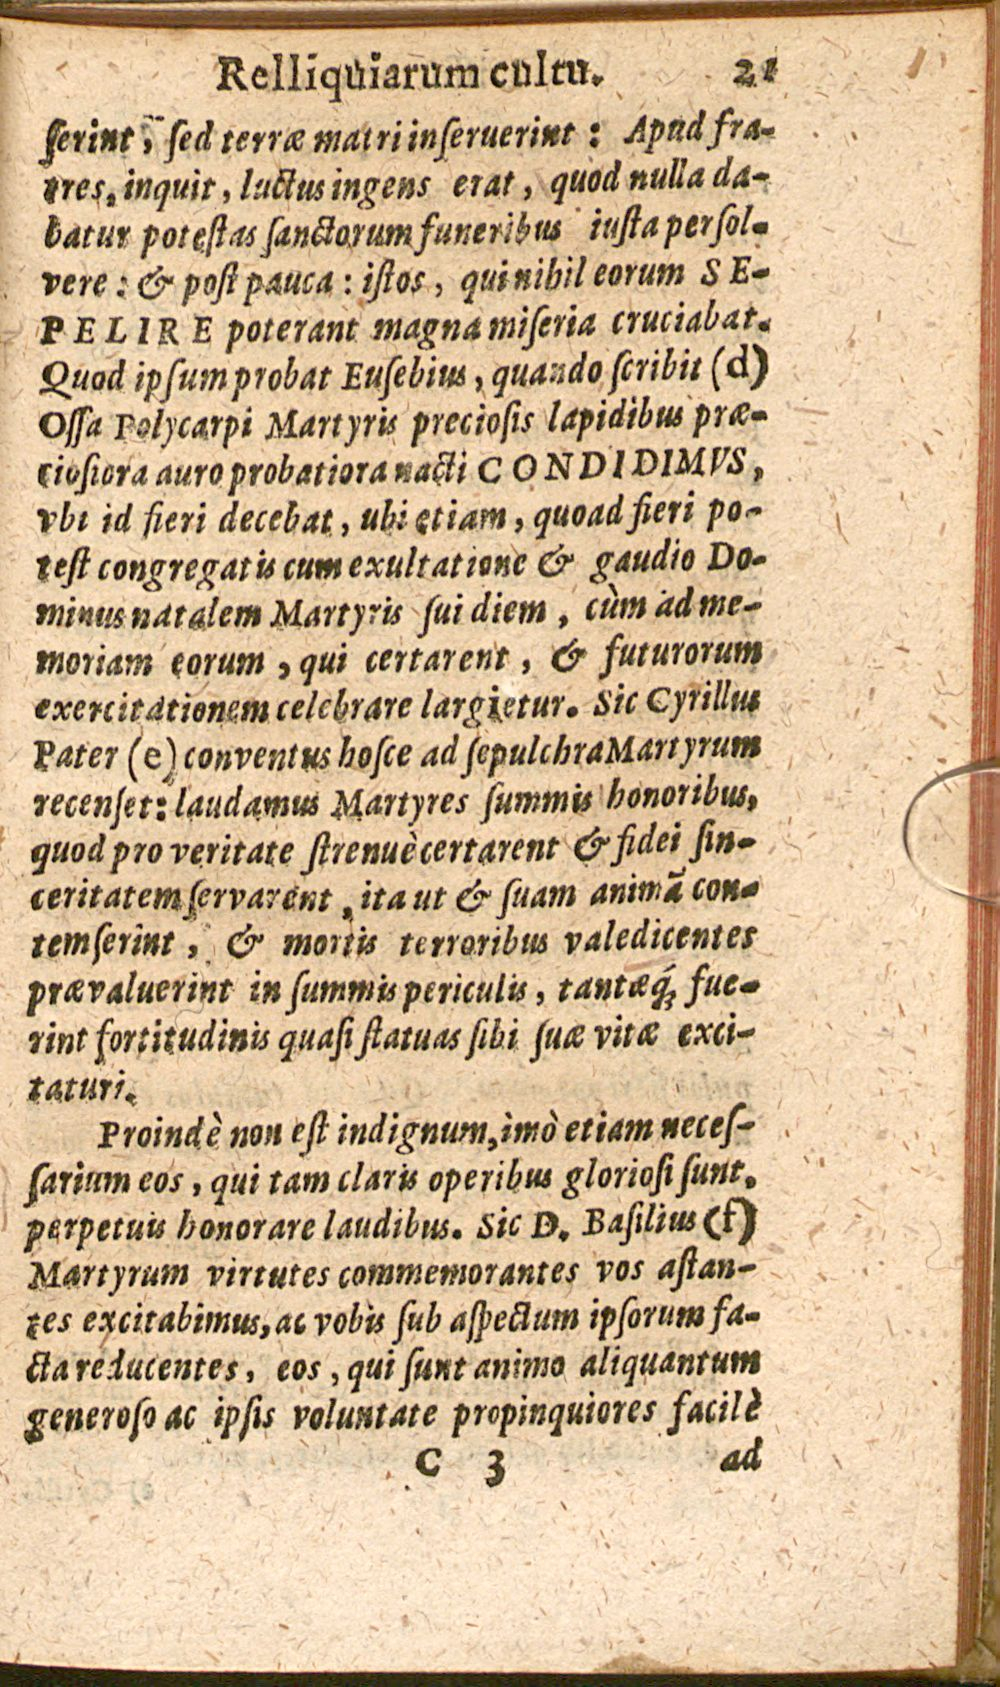 Relliquiarum cultu. 21
ſerint, ſed terræ matri inſeruerint : Apud fra-
tres, inquit, luctus ingens erat, quod nulla da-
batur poteſtas ſanctorum funeribus iuſta perſol-
vere : & poſt pauca : iſtos, qui nihil eorum SE-
PELIRE poterant magna miſeria cruciabat.
Quod ipſum probat Euſebius, quando ſcribit (d)
Oſſa Polycarpi Martyris precioſis lapidibus præ-
cioſiora auro probatiora nacti CONDIDIMVS,
vbi id fieri decebat, ubi etiam, quoad fieri po-
teſt congregatis cum exultatione & gaudio Do-
minus natalem Martyris ſui diem, cùm ad me-
moriam eorum, qui certarent, & futurorum
exercitationem celebrare largietur. Sic Cyrillus
Pater (e) conventus hoſce ad ſepulchra Martyrum
recenſet: laudamus Martyres ſummis honoribus,
quod pro veritate ſtrenuè certarent & fidei ſin-
ceritatem ſervarent, ita ut & ſuam animā con-
temſerint, & mortis terroribus valedicentes
prævaluerint in ſummis periculis, tantæq́; fue-
rint fortitudinis quaſi ſtatuas ſibi ſuæ vitæ exci-
taturi.
Proindè non eſt indignum, imò etiam neceſ-
ſarium eos, qui tam claris operibus glorioſi ſunt.
perpetuis honorare laudibus. Sic D. Baſilius (f)
Martyrum virtutes commemorantes vos aſtan-
tes excitabimus, ac vobis ſub aſpectum ipſorum fa-
cta reducentes, eos, qui ſunt animo aliquantum
generoſo ac ipſis voluntate propinquiores facilè
C 3 ad